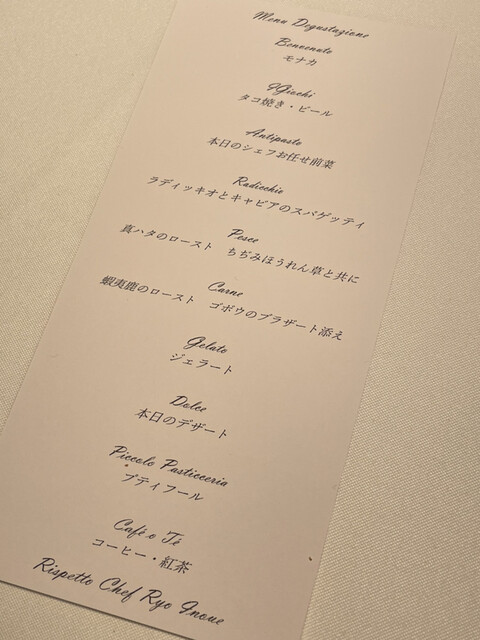 Menu Degustazione
Benvenuto
モナカ
I Giochi
タコ焼き・ビール
Antipasto
本日のシェフお任せ前菜
Radicchio
ラディッキオとキャビアのスパゲッティ
Pesce
真ハタのロースト ちぢみほうれん草と共に
Carne
蝦夷鹿のロースト ゴボウのブラザート添え
Gelato
ジェラート
Dolce
本日のデザート
Piccola Pasticceria
プティフール
Café o Té
コーヒー・紅茶
Rispetto Chef Ryo Inoue